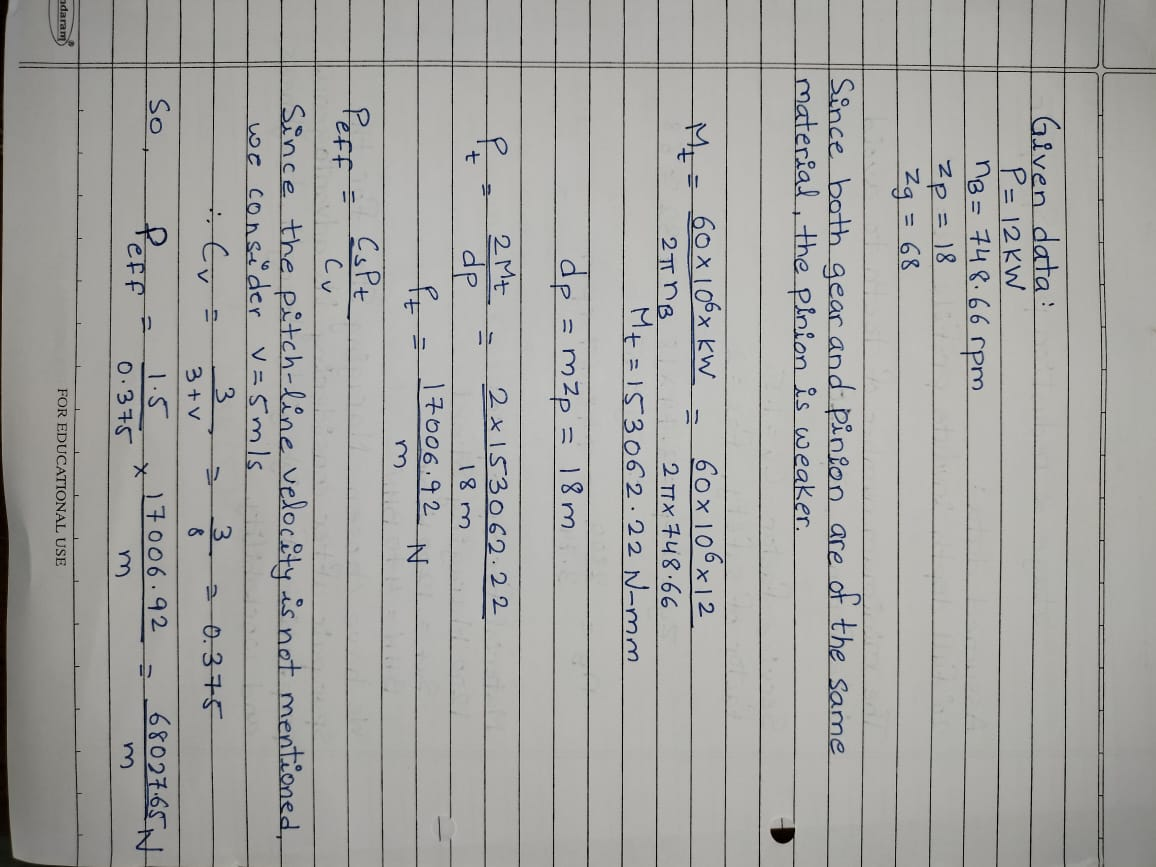 Given data:
P = 12 KW
nB = 748.66 rpm
zp = 18
zg = 68
Since both gear and pinion are of the same
material, the pinion is weaker.
Mt = 60 x 10^6 x KW / 2π nB = 60 x 10^6 x 12 / 2π x 748.66
Mt = 153062.22 N-mm
dp = mzp = 18m
Pt = 2Mt / dp = 2 x 153062.22 / 18m
Pt = 17006.92 / m N
Peff = CsPt / Cv
Since the pitch-line velocity is not mentioned,
we consider v = 5 m/s
∴ Cv = 3 / 3+v = 3 / 8 = 0.375
So, Peff = 1.5 / 0.375 x 17006.92 / m = 68027.65 / m N
FOR EDUCATIONAL USE